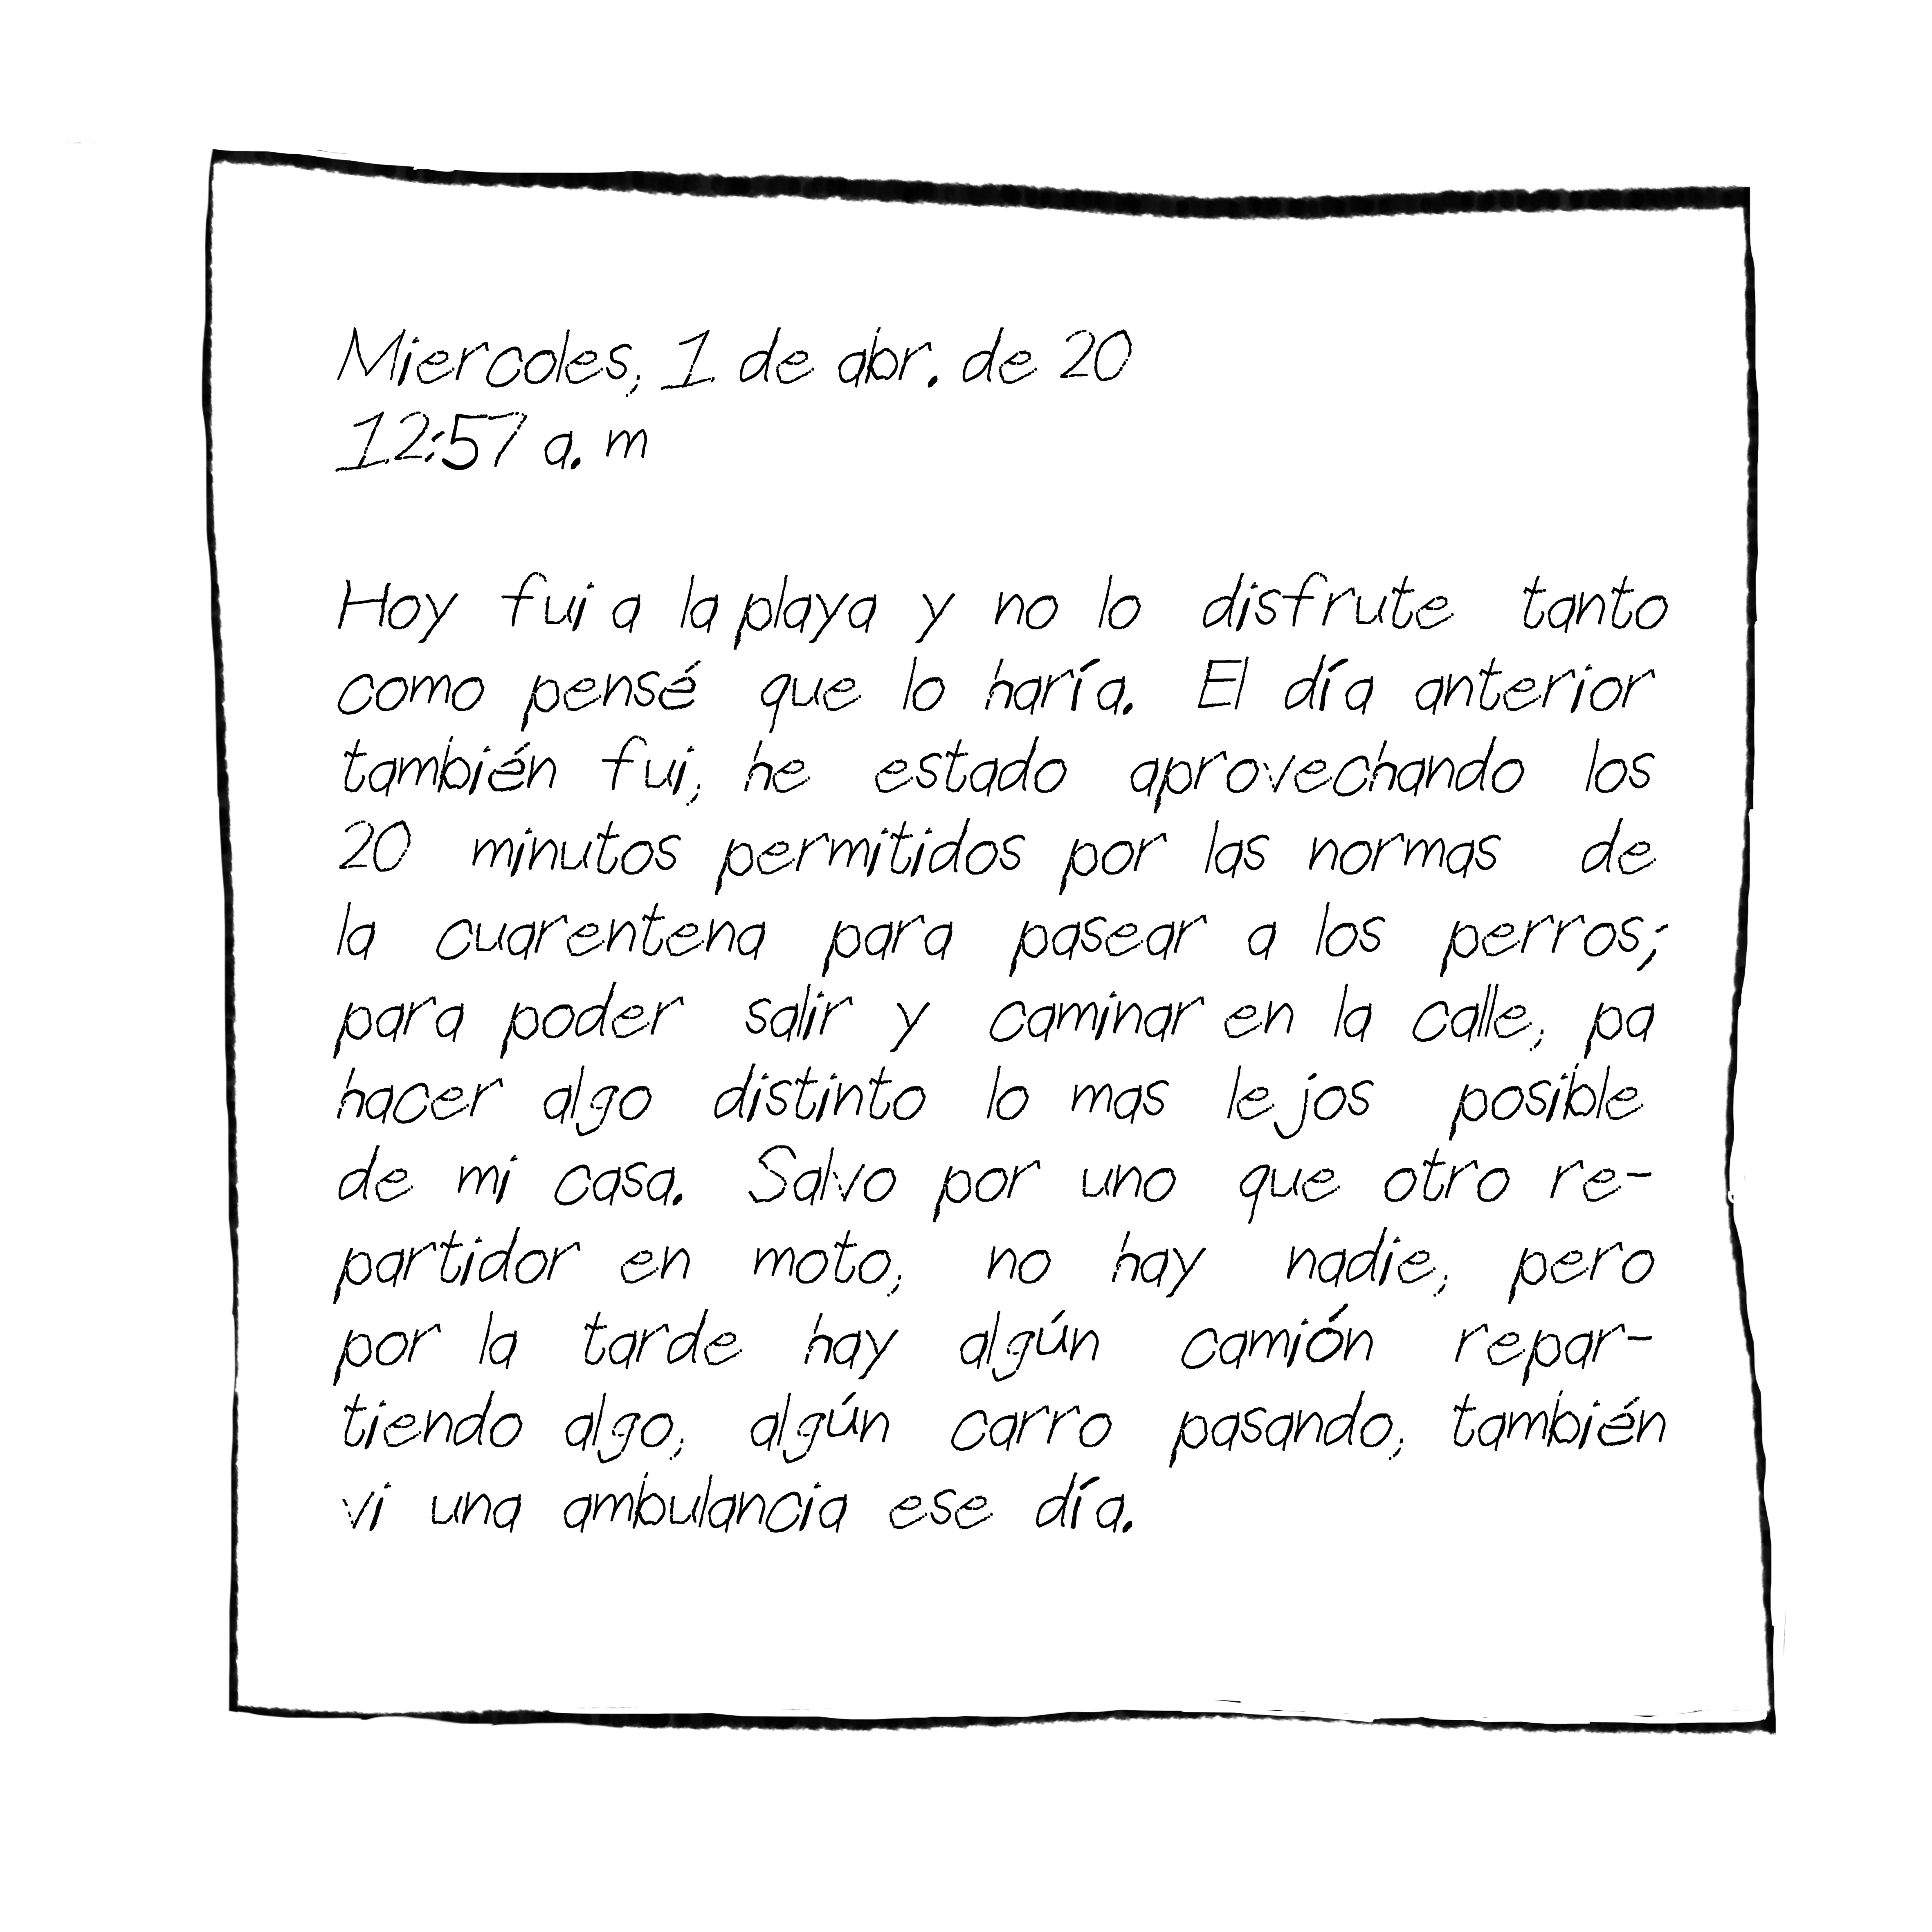 Miercoles, 1 de abr. de 20
12:57 a. m
Hoy fui a la playa y no lo disfrute tanto
como pensé que lo haría. El día anterior
también fui, he estado aprovechando los
20 minutos permitidos por las normas de
la cuarentena para pasear a los perros;
para poder salir y caminar en la calle, pa
hacer algo distinto lo mas lejos posible
de mi casa. Salvo por uno que otro re-
partidor en moto, no hay nadie, pero
por la tarde hay algún camión repar-
tiendo algo, algún carro pasando, también
vi una ambulancia ese día.